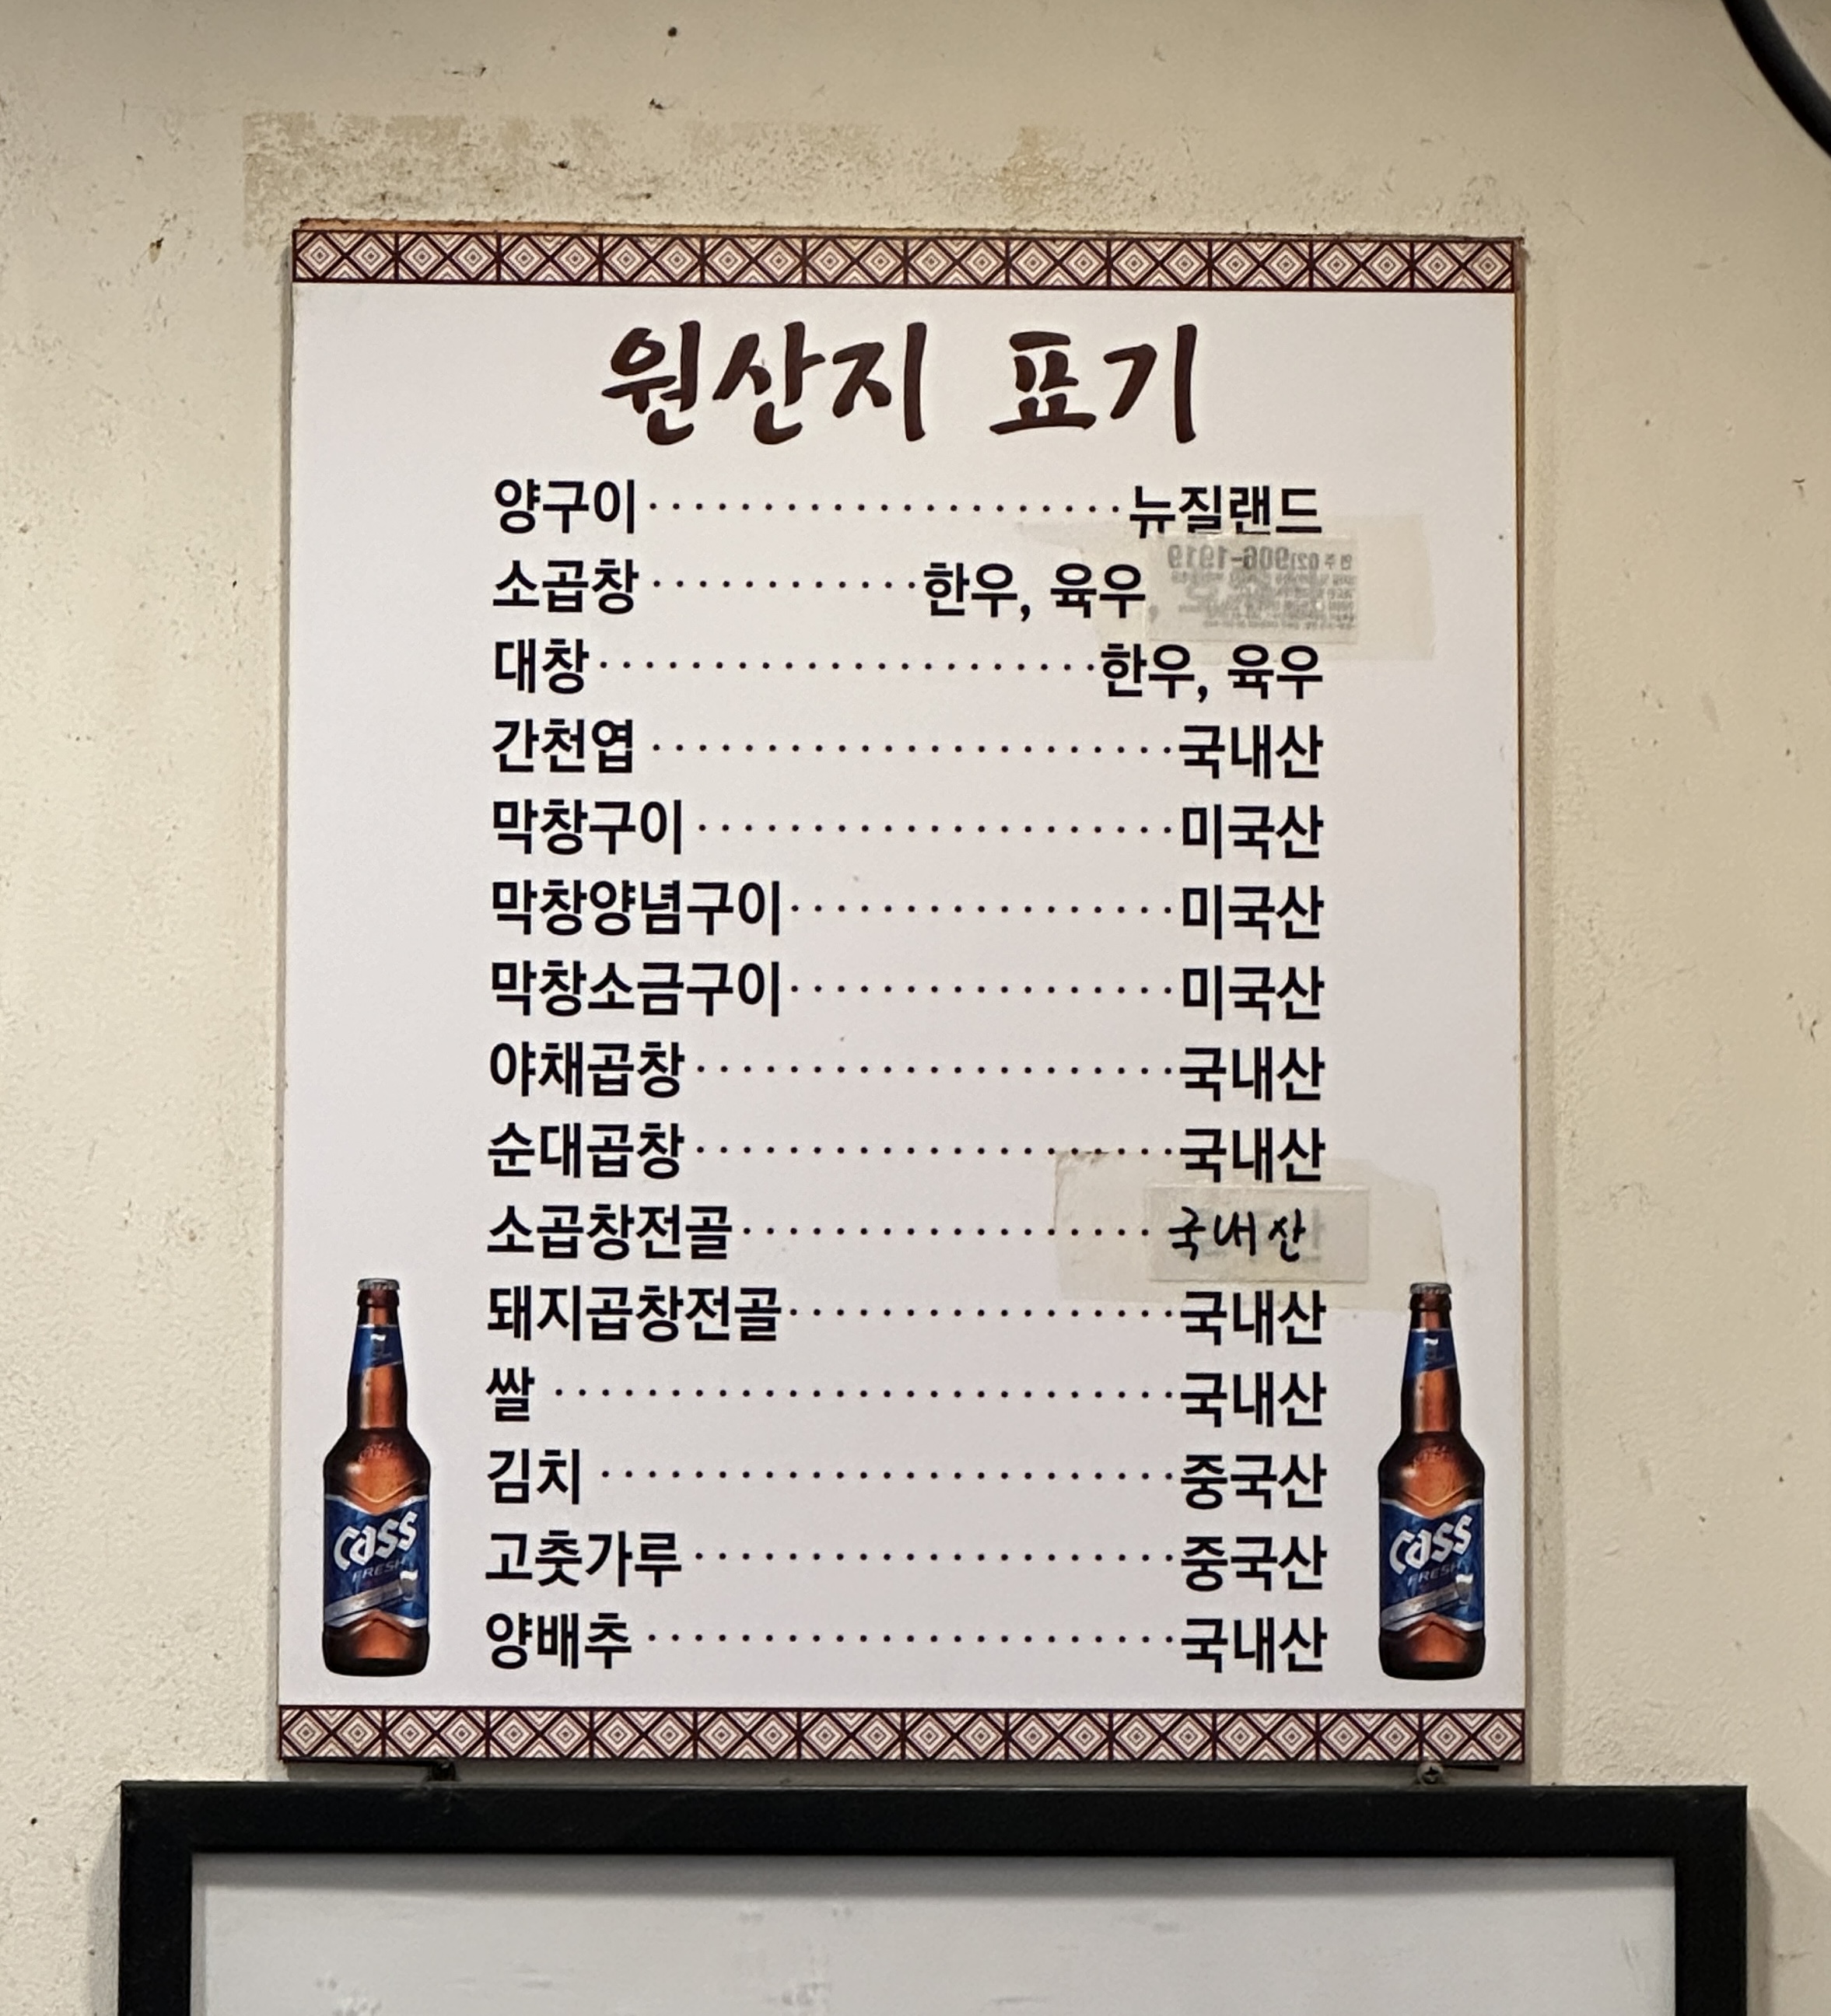 원산지 표기
양구이·····················뉴질랜드
소곱창············한우, 육우,
대창······················한우, 육우
간천엽·······················국내산
막창구이·····················미국산
막창양념구이·················미국산
막창소금구이·················미국산
야채곱창·····················국내산
순대곱창·····················국내산
소곱창전골··················국내산
돼지곱창전골·················국내산
쌀···························국내산
김치·························중국산
고춧가루·····················중국산
양배추·······················국내산
Cass
FRESH
Cass
FRESH